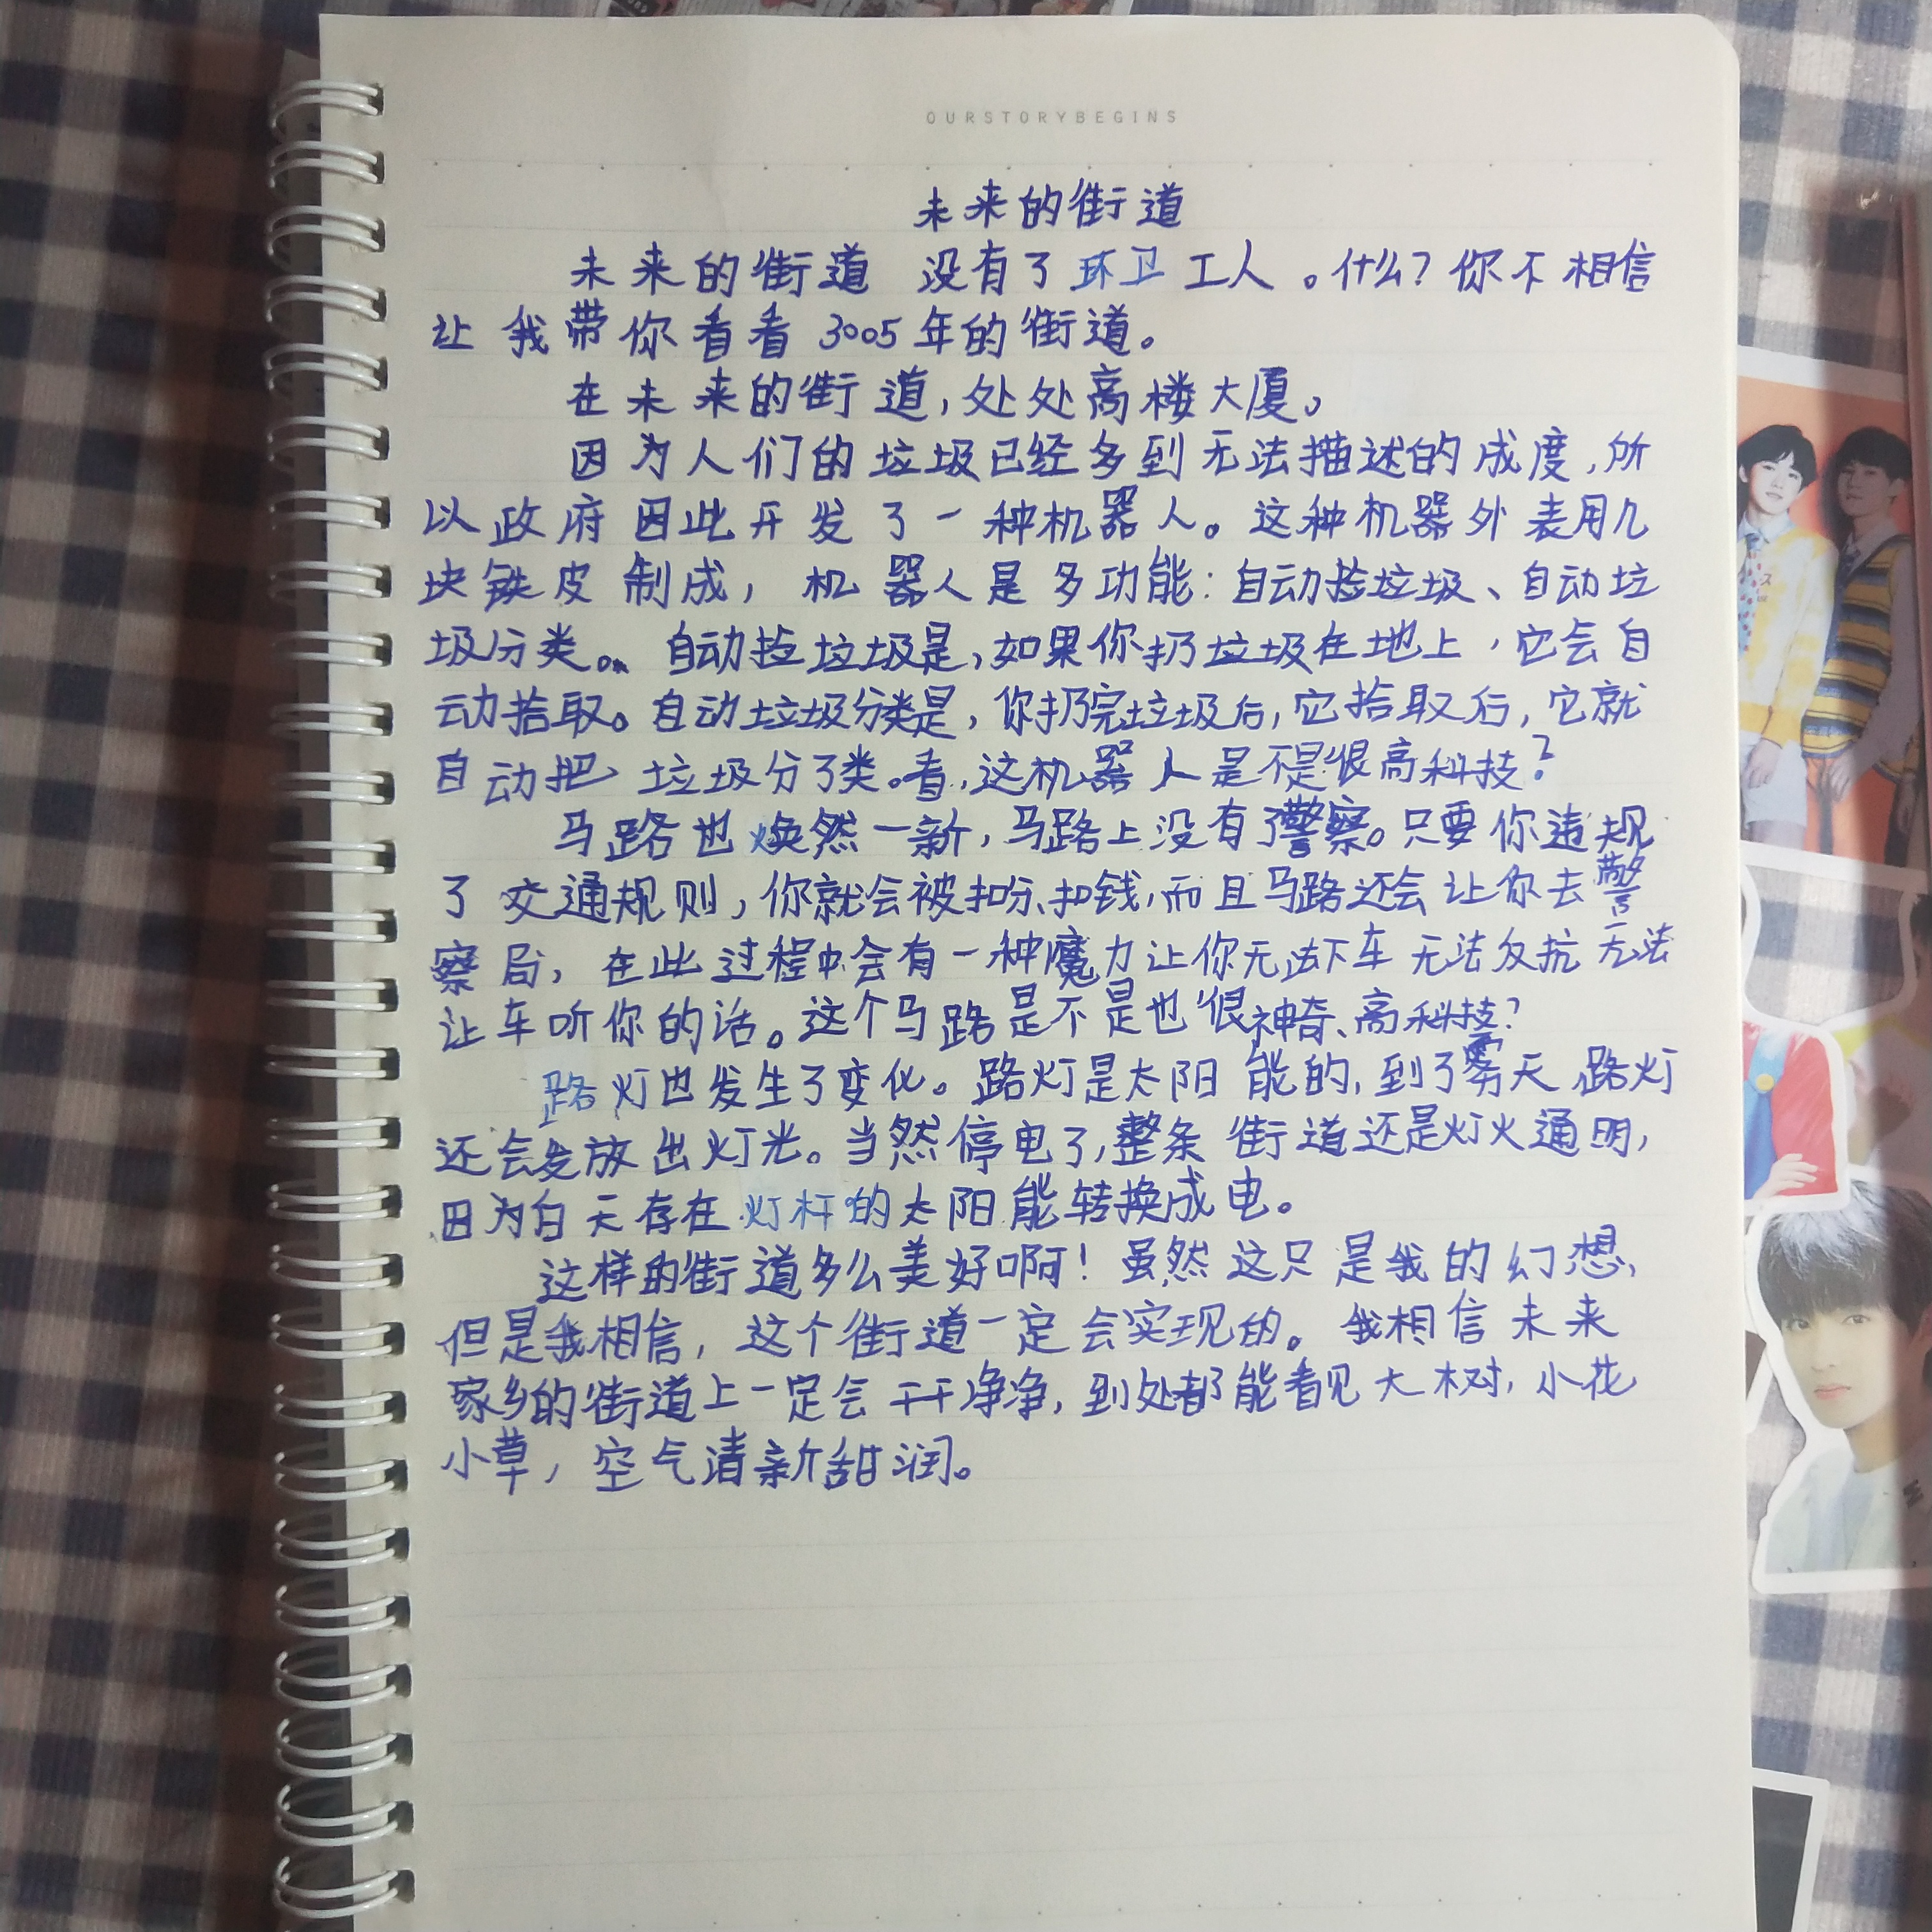 OURSTORYBEGINS
未来的街道
未来的街道 没有了环卫工人。什么?你不相信
让我带你看看3005年的街道。
在未来的街道,处处高楼大厦。
因为人们的垃圾已经多到无法描述的成度,所
以政府因此开发了一种机器人。这种机器外表用几
块铁皮制成,机器人是多功能:自动捡垃圾、自动垃
圾分类。自动捡垃圾是,如果你扔垃圾在地上,它会自
动拾取。自动垃圾分类是,你扔完垃圾后,它拾取后,它就
自动把垃圾分了类。看,这机器人是不是很高科技?
马路也焕然一新,马路上没有了警察。只要你违规
了交通规则,你就会被扣分、扣钱,而且马路还会让你去警
察局,在此过程中会有一种魔力让你无法下车 无法反抗 无法
让车听你的话。这个马路是不是也很神奇、高科技?
路灯也发生了变化。路灯是太阳能的,到了雾天,路灯
还会发放出灯光。当然停电了,整条街道还是灯火通明,
因为白天存在灯杆的太阳能转换成电。
这样的街道多么美好啊!虽然这只是我的幻想,
但是我相信,这个街道一定会实现的。我相信未来
家乡的街道上一定会干干净净,到处都能看见大树,小花
小草,空气清新甜润。